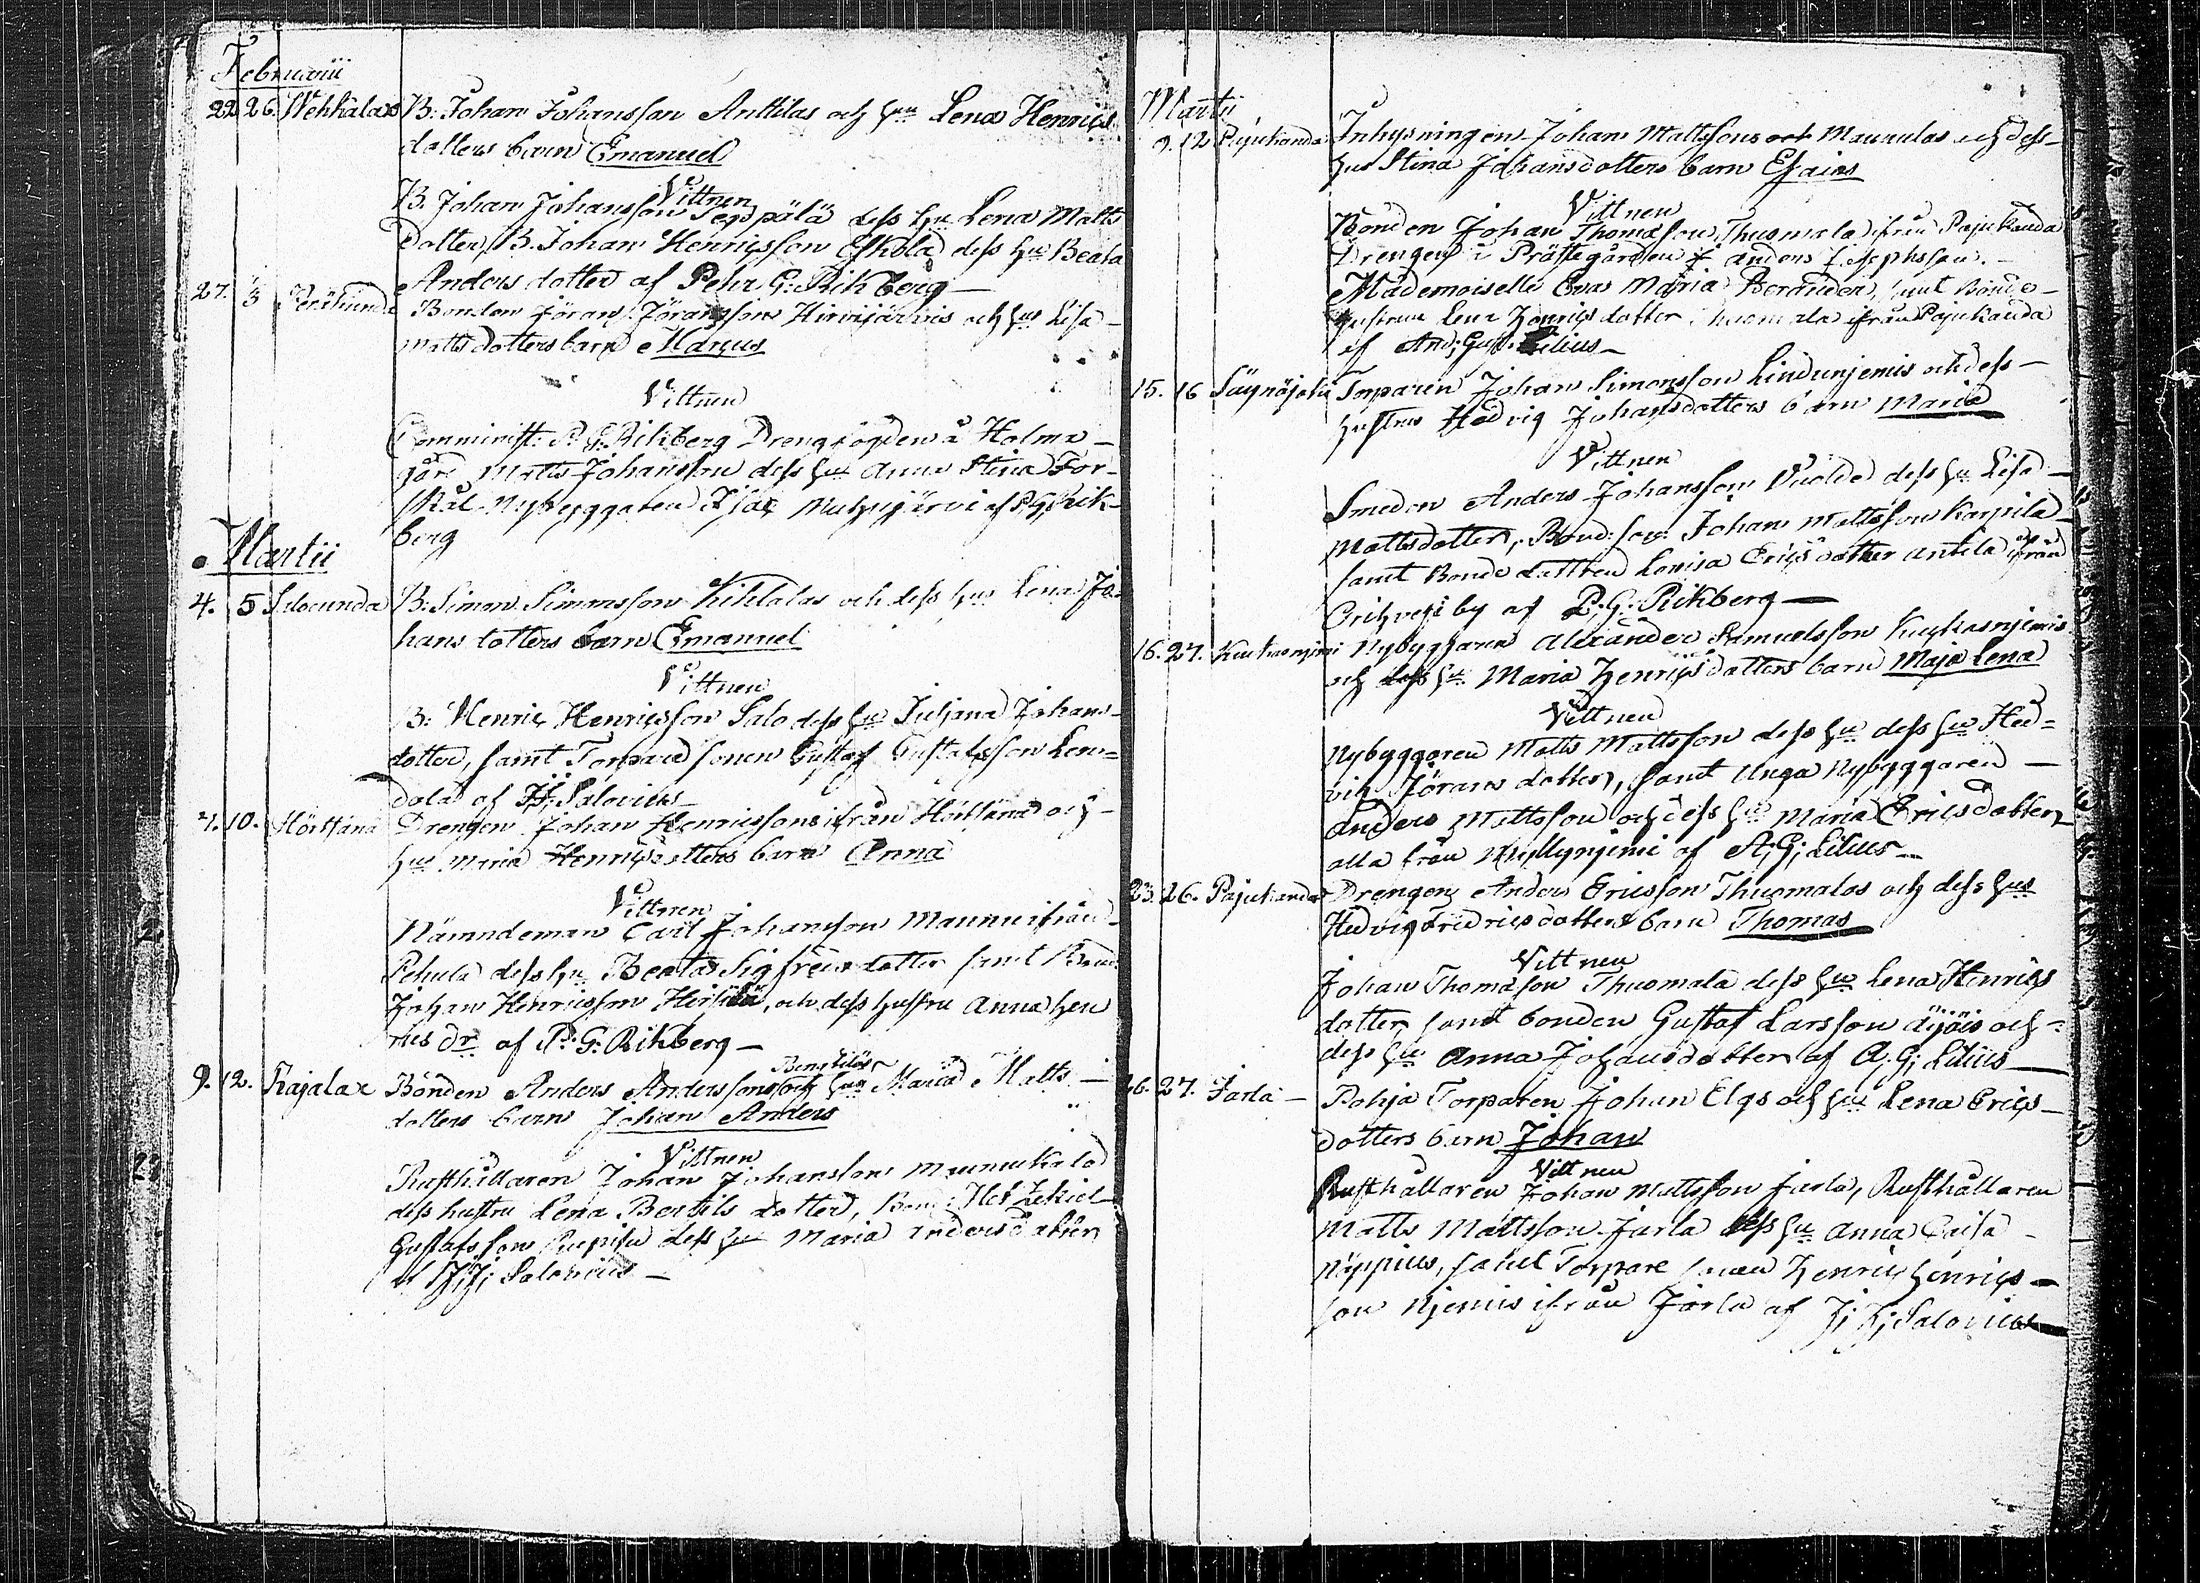 Februarii
22. 26. Wehkalax B. Johan Johansson Anttilas och hu Lena Henrics
dotters barn Emanuel
Vittnen
B. Johan Johansson Seppälä dess hu Lena Matts
dotter, B. Johan Henricsson Eskola dess hu Beata
Anders dotter af Pehr G. Rikberg
27. 3 Peräkunda Bonden Jöran Jöransson Hirvijärvis och hus Lisa
Matts dotters barn Marcus
Vittnen
Comminist: P. G. Rikberg Drengfogden å Holma
gård Matts Johansson dess hu Anna Stina For-
Nybyggaren Isac af P. G. Rik-
berg
Martii
4. 5 Sdocunda B: Simon Simonsson Kihlolas och dess hus Lena Jo
hans dotters barn Emanuel
Vittnen
B: Henric Henricsson Salo dess hu Juljana Johans
dotter, samt Torpare sonen Gustaf Gustafsson Len=
dala af J. J. Salovius
7. 10. Hörttänä Drengen Johan Henricssons ifrån Hörttänä och
hus Maria Henricsdotters barn Anna
Vittnen
Nämndeman Carl Johansson Maunu ifrån
Pehula dess hu Beata Sigfreds dotter samt Bond:
Johan Henricsson och dess hustru Anna Hen
rics dr af P. G. Rikberg
9. 12. Rajalax Bonden Anders Anderssons Bengtilös och hus Maria Matts
dotters barn Johan Anders
Vittnen
Rusthållaren Johan Johansson Maunukala
dess hustru Lena Bertils dotter, Bond: Hetzekiel
Gustafsson dess hu Maria Anders dotter
af J. J. Salovius
Martii
9. 12 Pajukanda Inhysningen Johan Mattssons och dess
hus Stina Johansdotters barn Esaias
Vittnen
Bonden Johan Thomasson Thuomala ifrån Pajukanda
Drengen i Prästegården Anders Josephsson.
Mademoiselle Eva Maria samt Bonde
hustrun Lena Henrics dotter Thuomala ifrån Pajukanda
af And: Gust: Lilius
15. 16 Säynäjoki Torparen Johan Simonsson Lindunjemis och dess
hustru Hedvig Johansdotters barn Maria
Vittnen
Smeden Anders Johansson Vuolde dess hu Lisa
Mattsdotter, Bond: son Johan Mattsson Karpila
samt Bonde dottren Lovisa Erics dotter Antila ifrån
by af P. G. Rikberg
16. 27. Nybyggaren Alexander Samuelsson
och dess hu Maria Henrics dotters barn Maja Lena
Vittnen
Nybyggaren Matts Mattsson dess hu dess hu Hed=
vig Jörans dotter, samt Unga Nybyggaren
Anders Mattsson och dess hu Maria Ericsdotter
alla från af A. G. Lilius
23. 26. Pajukanda Drengen Anders Ericsson Thuomalas och dess hus
Hedvig Fredrics dotters barn Thomas
Vittnen
Johan Thomasson Thuomala dess hu Lena Henrics
dotter samt bonden Gustaf Larsson Äijäis och
dess hu Anna Johansdotter af A. G. Lilius
26. 27. Jarla Pohja Torparen Johan Elgs och hu Lena Erics
dotters barn Johan
Vittnen
Rusthållaren Johan Mattsson Jarla, Rusthållaren
Matts Mattsson Jarla dess hu Anna Caisa
Nippius, samt Torpare sonen Henric Henrics
son Njemis ifrån Jarla af J. J. Salovius